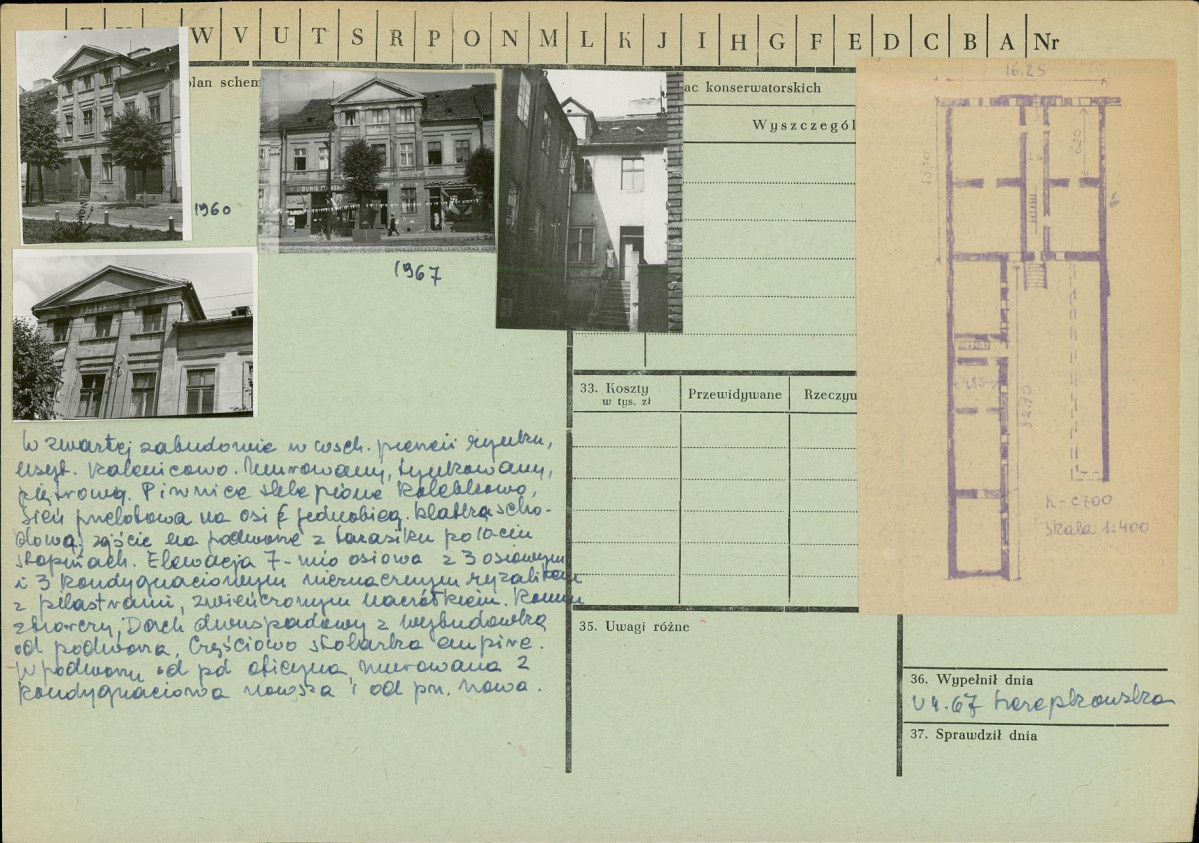 W V U T S R P O N M L K J I H G F E D C B A Nr
plan schem
ac konserwatorskich
Wyszczegól
1960
1967
33. Koszty
w tys. zł
Przewidywane
Rzeczyw
W zwartej zabudowie w wsch. pierzei rynku,
usyt. kalenicowo. Murowany, tynkowany,
piętrowy. Piwnice sklepione kolebkowo,
sień przelotowa na osi z jednobieg. klatką scho-
dową, zejście na podwórze z tarasiku po
stopniach. Elewacja 7-mio osiowa z 3 osiowym
i 3 kondygnacionym nieznacznym ryzalitem
z pilastrami, zwieńczonym naczółkiem.
zbiorczy, Dach dwuspadowy z wybudówką
od podwórza, Częściowo stolarka empire.
W podwórzu od pd oficyna murowana 2
kondygnaciowa nowsza i od pn. nowa.
35. Uwagi różne
36. Wypełnił dnia
67
37. Sprawdził dnia
16.25
620
485
32.75
skala 1:400